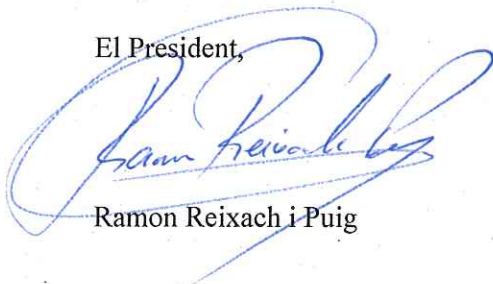 El President,
Ramon Reixach Puig
Ramon Reixach i Puig